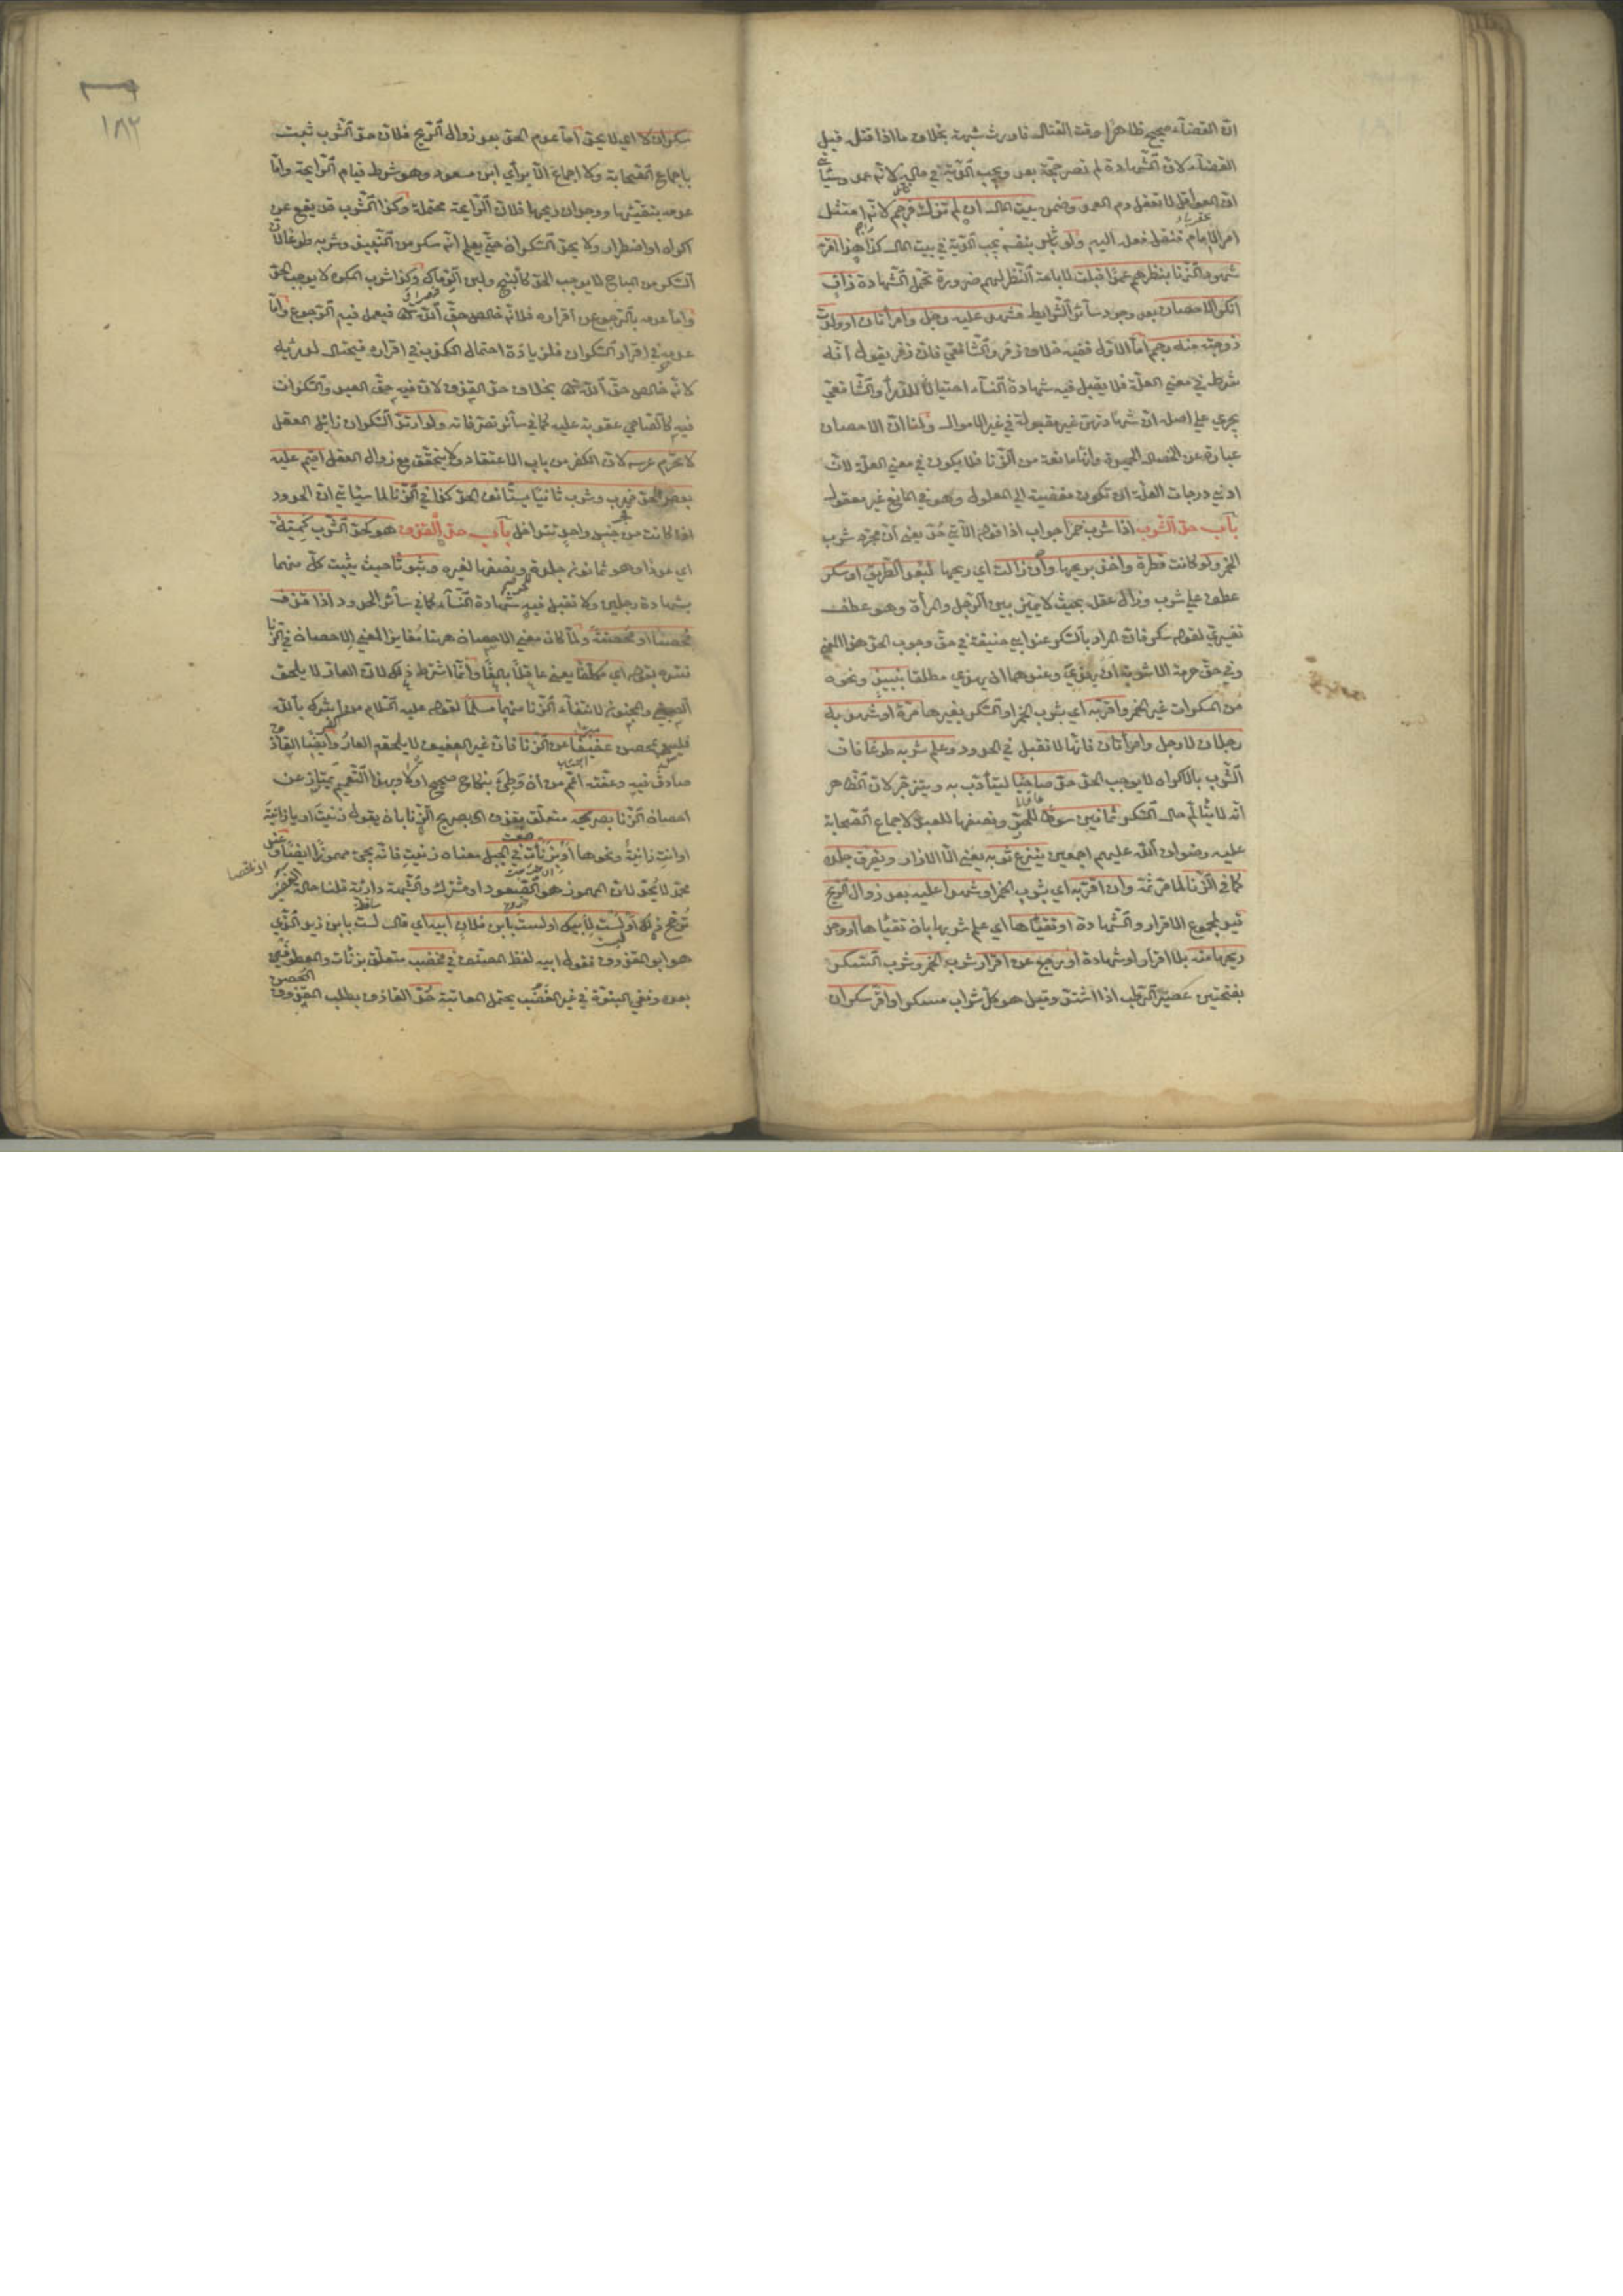 انّ القضآء صحيح ظاهرًا وقت القتل فاورث شبهة بخلاف ما اذا قتل قبل
القضآء لانّ الشّهادة لم تصر حجّة بعد ويجب الدّية في ماله لانّه عمد
انّ العواقل لا تعقل دم العمد وضمن بيت المال ان لم تزكّ فرجم لانّه امتثل
امر الامام فنقل فعله اليه ولو بنفسه يجب الدّية في بيت المال كذا هذا اقرّ
شهود الزّنا بنظرهم عمدًا قبلت لاباحة النّظر لهم ضرورة تحمّل الشّهادة زانٍ
انكر الاحصان بعد وجود سآئر الشّرايط فشهد عليه رجل وامرأتان او ولدت
زوجته منه رجم امّا الاوّل ففيه خلاف زفر والشّافعي فانّ زفر يقول انّه
شرط في معنى العلّة فلا يقبل فيه شهادة النّسآء احتيالا للدرأ والشّافعيّ
يجري على اصله انّ شهادتهنّ غير مقبولة في غير الاموال ولنا انّ الاحصان
عبارة عن الخصال الحميدة وانّها مانعة من الزّنا فلا يكون في معنى العلّة لانّ
ادنى درجات العلّة ان تكون مفضية الى المعلول وهو في المانع غير معقول
باب حدّ الشّرب اذا شرب خمرًا جواب اذا قوله الآتي حُدّ يعني انّ مجرّد شرب
الخمر ولو كانت قطرة واخذ بريحها وان زالت اي ريحها لبُعد الطّريق او سكر
عطف على شرب وزال عقله بحيث لا يميّز بين الرّجل والمرأة وهو عطف
تفسيريّ لقوله سكر فانّ المراد بالسّكر عند ابي حنيفة في حقّ وجوب الحدّ هذا المعنى
وفي حقّ حرمة الاشربة ان يهذي وعندهما ان يهذي مطلقا بنبيذٍ ونحوه
من المسكرات غير الخمر واقرّ به اي بشرب الخمر او السّكر بغيرها مرّة او شهد به
رجلان لا رجل وامرأتان فانّها لا تقبل في الحدود وعلم شربه طوعًا فانّ
الشّرب بالاكراه لا يوجب الحدّ حدّ صاحيًا ليتأدّب به وينزجر لانّ الظّاهر
انّه لا يتألّم حال السّكر ثمانين سوطًا للحرّ ونصفها للعبد لاجماع الصّحابة
عليه رضوان اللّه عليهم اجمعين ينزع ثوبه يعني الّا الازار ويفرّق جلده
كما في الزّنا لما مرّ ثمّة وان اقرّ به اي بشرب الخمر او شهدا عليه بعد زوال الرّيح
قيد لمجموع الاقرار والشّهادة او تقيّأها اي علم شربها بان تقيّأها او وجد
ريحها منه بلا اقرار او شهادة او رجع عن اقرار شرب الخمر وشرب السّكر
بفتحتين عصير الرّطب اذا اشتدّ وقيل هو كلّ شراب مسكر او اقرّ سكران
١٨٢
سكران لا اي لا يحدّ امّا عدم الحدّ بعد زوال الرّيح فلانّ حدّ الشّرب ثبت
باجماع الصّحابة ولا اجماع الّا برأي ابن مسعود وهو شرط قيام الرّايحة وامّا
عدمه بتقيّئها ووجدان ريحها فلانّ الرّايحة محتملة وكذا الشّرب قد يقع عن
اكراه او اضطرار ولا يحدّ السّكران حتّى يعلم انّه سكر من النّبيذ وشربه طوعًا لانّ
السّكر من المباح لا يوجب الحدّ كالبنج ولبن الرّماك وكذا شرب المكره لا يوجب الحدّ
وامّا عدمه بالرّجوع عن اقراره فلانّه خالص حقّ اللّه تعالى فيعمل فيه الرّجوع وامّا
عدمه في اقرار السّكران فلزيادة احتمال الكذب في اقراره فيحتال لدرئه
لانّه خالص حقّ اللّه تعالى بخلاف حدّ القذف لانّ فيه حقّ العبد والسّكران
فيه كالصّاحي عقوبة عليه كما في سآئر تصرّفاته ولو ارتدّ السّكران زايل العقل
لا تحرم عرسه لانّ الكفر من باب الاعتقاد ولا يتحقّق مع زوال العقل اقيم عليه
بعض الحدّ فهرب وشرب ثانيًا يستأنف الحدّ كذا في الزّنا لما سيأتي انّ الحدود
اذا كانت من جنس واحد تتداخل باب حدّ القذف هو كحدّ الشّرب كميّة
اي عددا وهو ثمانون جلدة ونصفها لغيره وثبوتًا حيث يثبت كلّ منهما
بشهادة رجلين ولا تقبل فيه شهادة النّسآء كما في سآئر الحدود اذا قذف
مُحصنًا او مُحصنةً ولمّا كان معنى الاحصان ههنا مُغايرا لمعنى الاحصان في الزّنا
فسّره بقوله اي مكلّفًا يعني عاقلًا بالغًا وانّما اشترط ذلك لانّ العار لا يلحق
الصبيّ والمجنون لانتفآء الزّنا منهما مسلمًا لقوله عليه السّلام من اشرك باللّه
فليس بمحصن عفيفًا عن الزّنا فانّ غير العفيف لا يلحقه العار وايضًا القاذف
صادق فيه وعفّته اعّم من ان وَطِئ بنكاح صحيح او لا وبهذا التّعميم يمتاز عن
احصان الزّنا بصريحه متعلّق بقذف اي بصريح الزّنا بان يقول زنيتَ او يا زانية
او انتِ زانية ونحوها او بزنأتَ في الجبل معناه زنيت فانّه يجئ مهموزًا ايضًا وعند
محمّد لا يُحدّ لانّ المهموز هو الصّعود او مشترك والشّبهة دارئة قلنا حالة الغضب
تُرجّح ذلك او لستَ لأبيك او لست بابن فلان ابيه اي قال لست بابن زيد الّذي
هو ابو المقذوف فقوله ابيه لفظ المصنّف في غضب متعلّق بزنأت والمعطوفين
بعده ونفي البنوّة في غير الغضب يحتمل المعاتبة حُدّ القاذف بطلب المقذوف